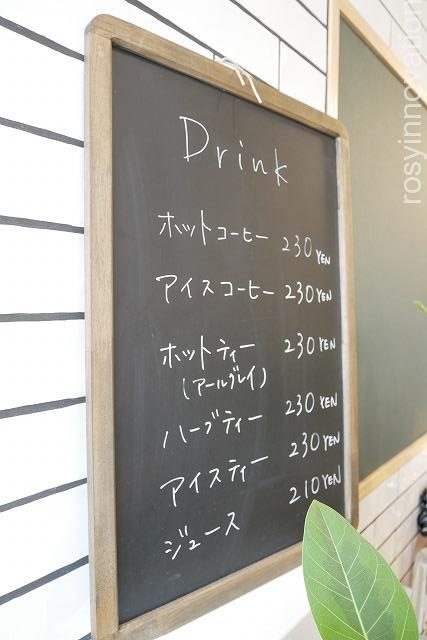 Drink
ホットコーヒー 230 YEN
アイスコーヒー 230 YEN
ホットティー 230 YEN
(アールグレイ)
ハーブティー 230 YEN
アイスティー 230 YEN
ジュース 210 YEN
rosyinnovation